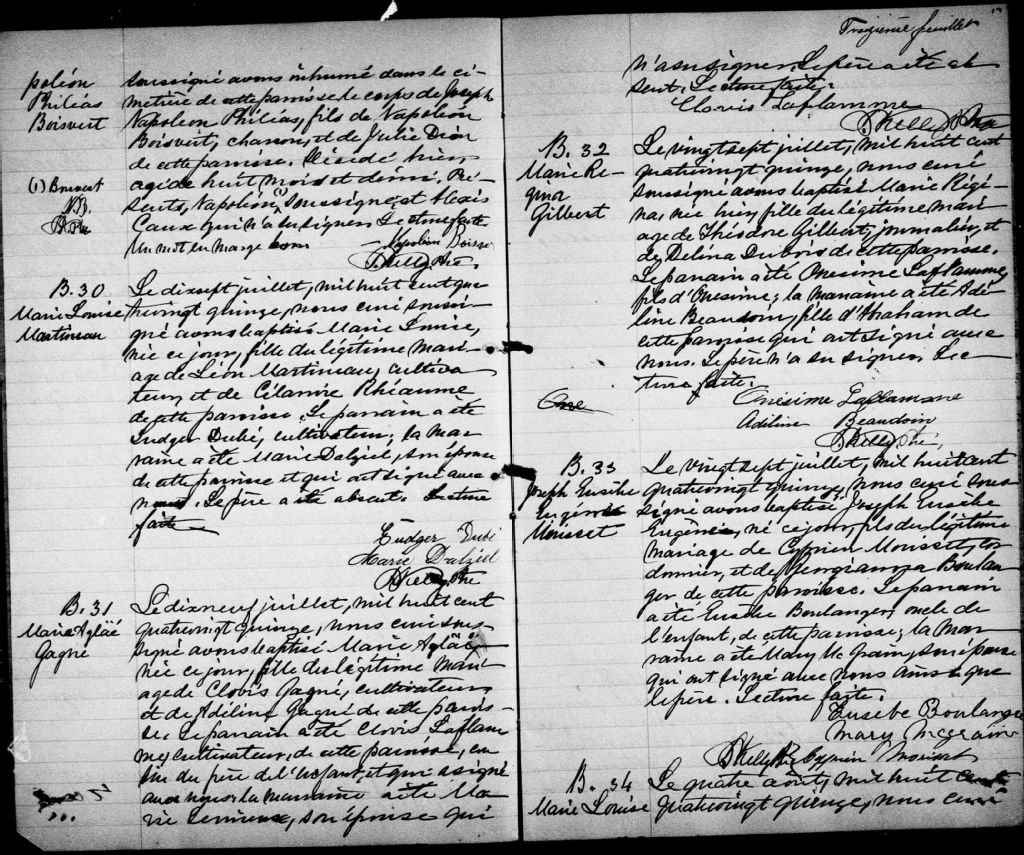 poléon
Philéas
Boisvert
soussigné avons inhumé dans le ci-
metière de cette paroisse le corps de Joseph
Napoléon Philéas, fils de Napoléon
Boisvert, charron, et de Julie Dion
de cette paroisse. Décédé hier,
agé de huit mois et demi. Pré-
(1) Boisvert
N.B.
sents, Napoléon (1) soussigné et Alexis
Caux qui n'a su signer. Lecture faite
Un mot en marge bon
Napoléon Boisve
B. 30
Marie Louise
Martineau
Le dixsept juillet, mil huit cent qua-
trevingt quinze, nous curé soussi-
gné avons baptisé Marie Louise,
née ce jour, fille du légitime mari-
age de Léon Martineau, cultiva-
teur, et de Célanire Rhéaume
de cette paroisse. Le parrain a été
Ludger Dubé, cultivateur; la mar-
raine a été Marie Dalziel, son épouse
de cette paroisse et qui ont signé avec
nous. Le père a été absent. Lecture
faite
Ludger Dubé
Marie Dalziel
B. 31
Marie Aglaé
Gagné
Le dixneuf juillet, mil huit cent
quatrevingt quinze, nous curé sous-
signé avons baptisé Marie Aglaé
née ce jour, fille du légitime mari-
age de Clovis Gagné, cultivateur
et de Adéline Gagné de cette parois-
se. Le parrain a été Clovis Laflam-
me, cultivateur, de cette paroisse, cou-
sin du père de l'enfant, et qui a signé
avec nous; la marraine a été Ma-
rie, son épouse qui
Treizième feuillet
n'a su signer. Le père a été ab-
sent. Lecture faite.
Clovis Laflamme
B. 32
Marie Ré-
gina
Gilbert
Le vingt sept juillet, mil huit cent
quatrevingt quinze, nous curé
soussigné avons baptisé Marie Régi-
na, née hier, fille du légitime mari-
age de Théodore Gilbert, journalier, et
de Delina Dubois de cette paroisse.
Le parrain a été Onesime Laflamme,
fils d'Onesime; la marraine a été Adé-
line Beaudoin, fille d'Abraham de
cette paroisse qui ont signé avec
nous. Le père n'a su signer. Lec-
ture faite.
Onésime Laflamme
Adéline Beaudoin
B. 33
Joseph Eusèbe
Eugène
Morisset
Le vingt sept juillet, mil huit cent
quatrevingt quinze, nous curé sous-
signé avons baptisé Joseph Eusèbe
Eugène, né ce jour, fils du légitime
mariage de Cyprien Morisset, cor-
donnier, et de Georgianna Boulan-
ger de cette paroisse. Le parrain
a été Eusèbe Boulanger, oncle de
l'enfant, de cette paroisse; la mar-
raine a été Mary McGrain, son épouse
qui ont signé avec nous ainsi que
le père. Lecture faite.
Eusebe Boulanger
Mary McGrain
Cyprien Morisset
B. 34
Marie Louise
Le quatre août, mil huit cent
quatrevingt quinze, nous curé